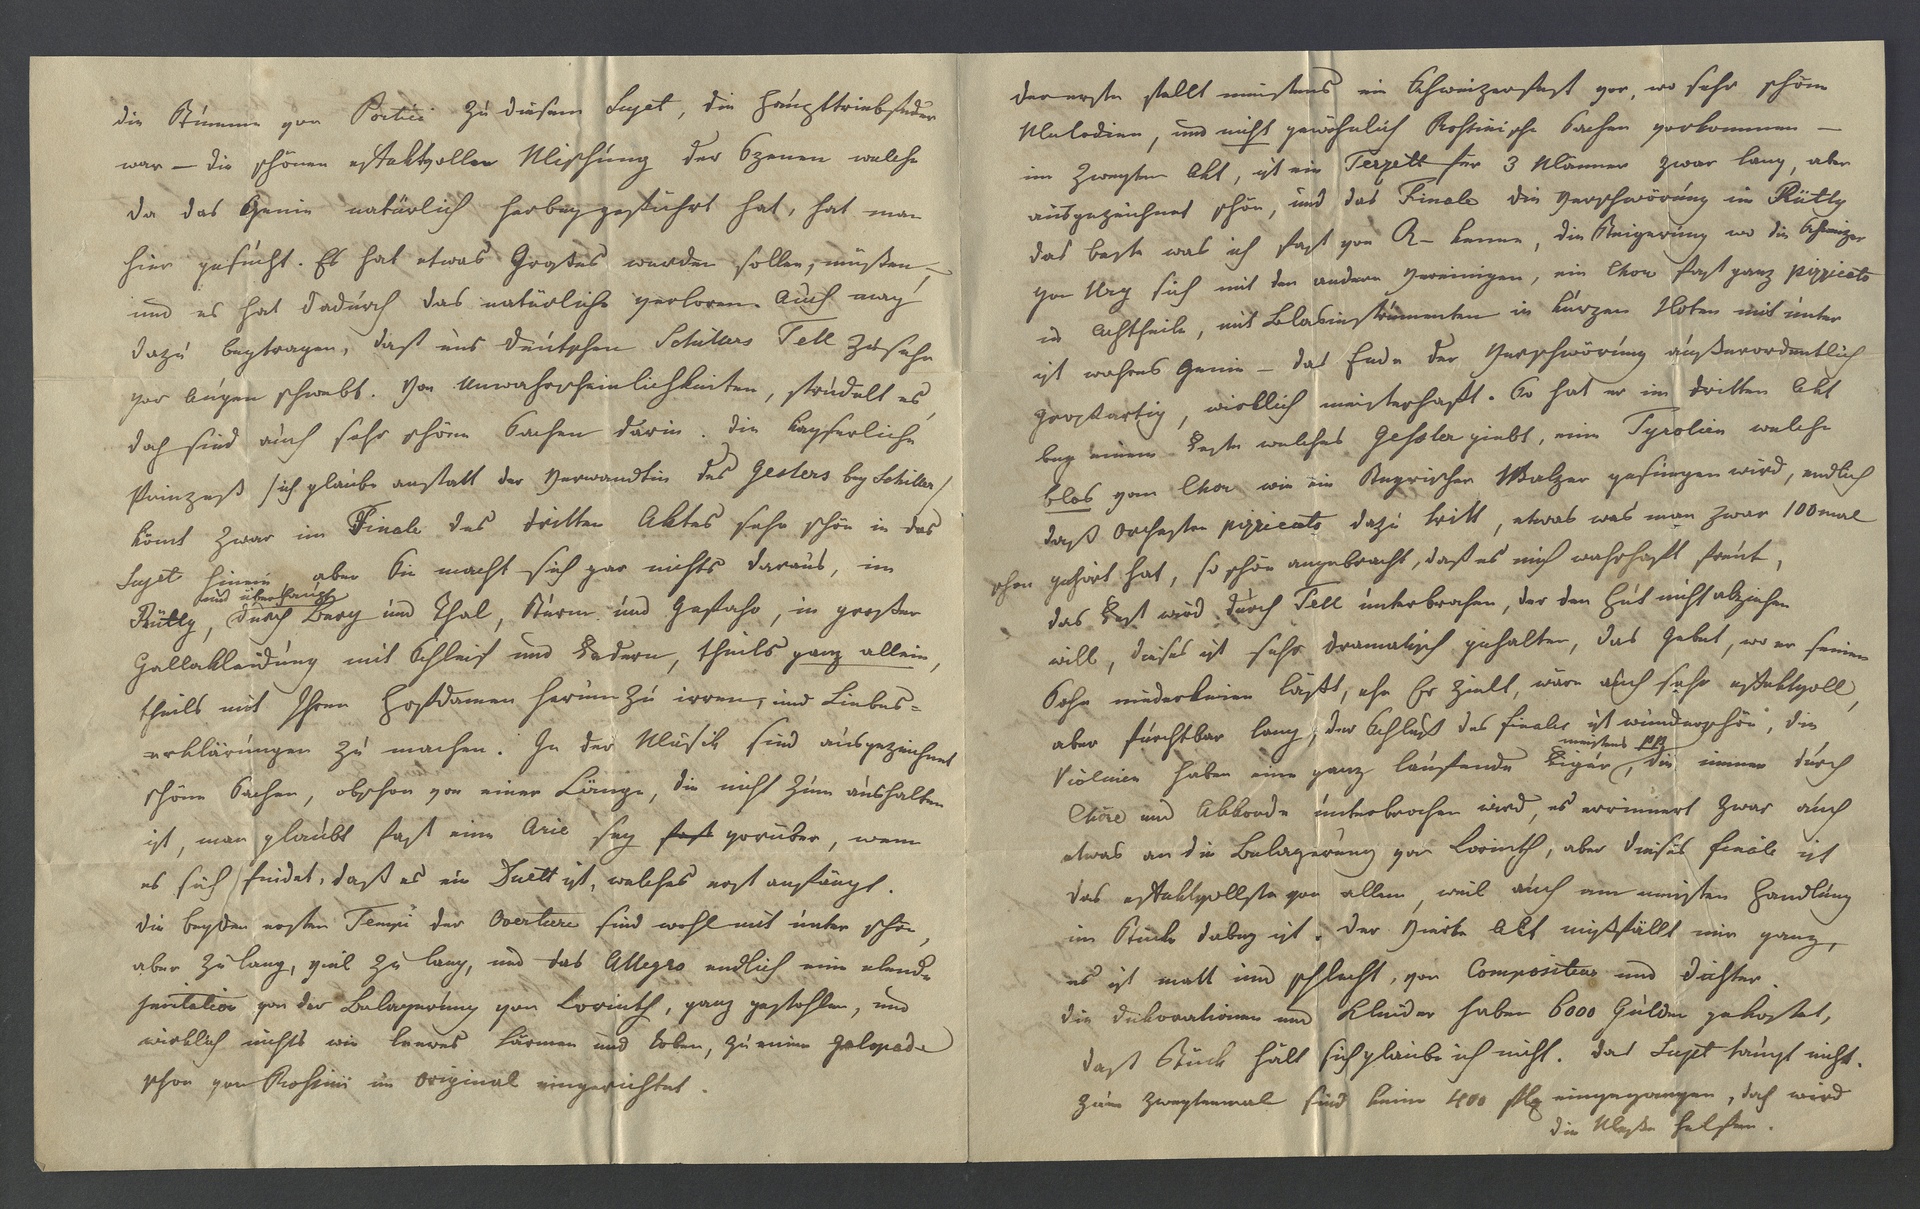 die Stumme von Portici zu diesem Sujet, die Haupttriebfeder
war – die schönen effektvollen Mischung der Szenen welche
da das Genie natürlich herbeygeführt hat, hat man
hier gesucht. Es hat etwas Großes werden sollen, müßen –
und es hat dadurch das natürliche verloren. Auch mag
dazu beytragen, daß uns Deutschen Schillers Tell zu sehr
vor Augen schwebt. Von Unwahrscheinlichkeiten, strudelt es,
doch sind auch sehr schöne Sachen darin. die kayserliche
Prinzeß /ich glaube anstatt der Verwandtin des Geslers bey Schiller/
kömt zwar im Finale des dritten Aktes sehr schön in das
Sujet hinein, aber Sie macht sich gar nichts daraus, im
und überhaupt
Rütly, durch Berg und Thal, Sturm und Gefahr, in großer
Gallakleidung mit Schleif und Federn, theils ganz allein,
theils mit Ihren Hofdamen herum zu irren, und Liebes=
erklärungen zu machen. In der Musik sind ausgezeichnet
schöne Sachen, obschon von einer Länge, die nicht zum aushalten
ist, man glaubt fast eine Arie sey fast vorüber, wenn
es sich findet, daß es ein Duett ist, welches erst anfängt.
die beyden ersten Tempi der Overture sind wohl mit unter schön,
aber zu lang, viel zu lang, und das Allegro endlich eine elende
Imitation von der Belagerung von Corinth, ganz gestohlen, und
wirklich nichts wie leeres Lärmen und Toben, zu einer Galopade
schon von Rossini im Original eingerichtet.
der erste stellt meistens ein Schweizerfest vor, wo sehr schöne
Melodien, und nicht gewöhnlich Rossinische Sachen vorkommen –
im zweyten Akt, ist ein Terzett für 3 Männer zwar lang, aber
ausgezeichnet schön, und das Finale die Verschwörung im Rütly
das beste was ich fast von R– kenne, die Steigerung wo die Schweizer
von Ury sich mit den andern vereinigen, ein Chor fast ganz pizzicato
in Achtheile, mit Blasinstrumenten in kurzen Noten mit unter
ist wahres Genie – das Ende der Verschwörung außerordentlich
großartig, wirklich meisterhaft. So hat er im dritten Akt
bey einem Feste welches Gessler giebt, eine Tyrolien welche
blos vom Chor wie ein Steyrischer Walzer gesungen wird, endlich
daß Orchester pizzicato dazu tritt, etwas was man zwar 100mal
schon gehört hat, so schön angebracht, daß es mich wahrhaft freut,
das Fest wird durch Tell unterbrochen, der den Hut nicht abziehen
will, dieses ist sehr dramatisch gehalten, das Gebet, wo er seinen
Sohn niederknien läßt, ehe Er zielt, wäre auch sehr effektvoll,
aber furchtbar lang, der Schluß des finales ist wunderschön, die
meistens pp
Violinen haben eine ganz laufende Figur, die immer durch
Chöre und Akkorde unterbrochen wird, es errinnert zwar auch
etwas an die Belagerung von Corinth, aber dieses finale ist
das effektvollste von allem, weil auch am meisten Handlung
im Stücke dabey ist. Der vierte Akt mißfällt mir ganz,
es ist matt und schlecht, von Compositeur und Dichter.
die Dekorationen und Kleider haben 6000 Gulden gekostet,
daß Stück hält sich glaube ich nicht. das Sujet taugt nicht.
Zum zweytenmal sind keine 400 eingegangen, doch wird
die Meße helfen.